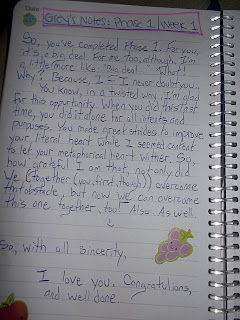 Date:
Grey's Notes: Phase 1/Week 1
So, you've completed Phase 1. For you,
it's a big deal. For me too, although, I'm
a little more like "Big deal..." What!
Why? Because, I - I never doubt you.
You know, in a twisted way, I'm glad
for this opportunity. When you did this last
time, you did it alone for all intents and
purposes. You made great strides to improve
your literal heart while I seemed content
to let your metaphorical heart wither. So,
how grateful I am that, not only did
we (together (you, first, though)) overcome
that obstacle, but now we can overcome
this one together, too! Also. As well.
So, with all sincerity,
I love you. Congratulations,
and well done.